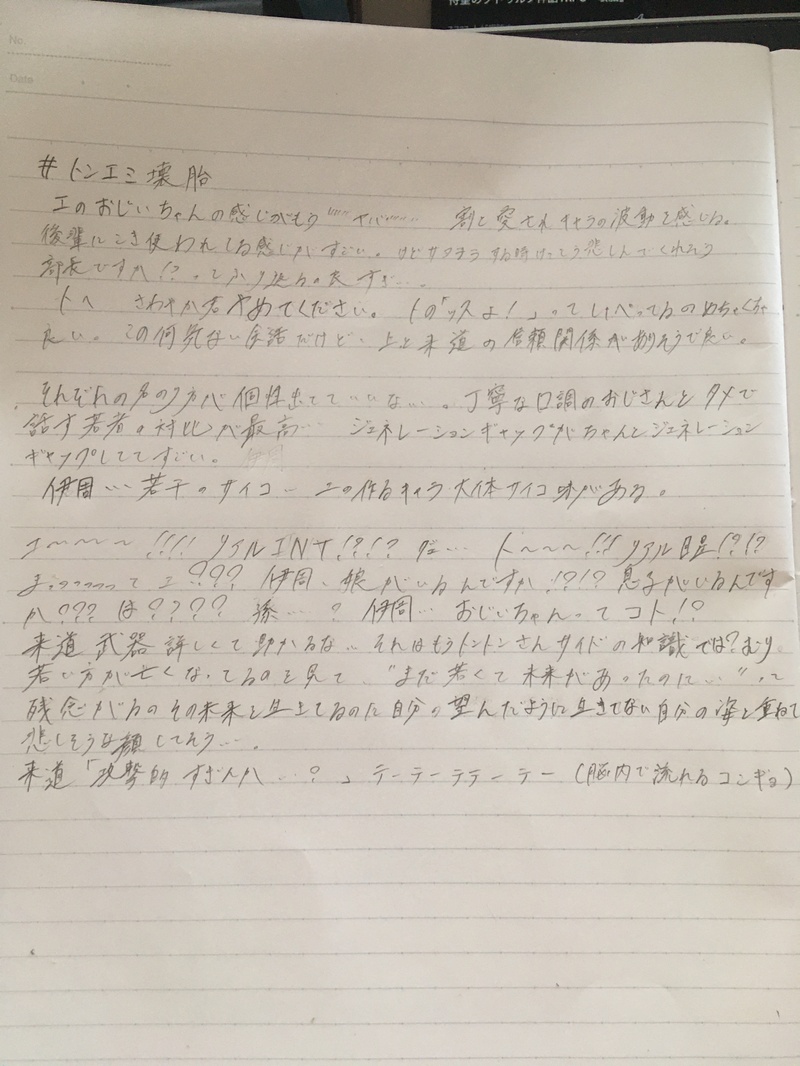 No.
Date
# トンエミ壊胎
エのおじいちゃんの感じがもう ヤバ 割と愛されキャラの波動を感じる。
後輩にこき使われてる感じがすごい。けど する時けっこう悲しんでくれそう
部長ですか!?って
トへ さわやか若 やめてください。トの「ッスよ！」って しゃべってるのめちゃくちゃ
良い。この何気ない会話だけど、 と来道の信頼関係がありそうで良い。
それぞれの 方が個性出てて 。丁寧な口調のおじさんとタメで
話す若者の対比が最高… ジェネレーションギャップがちゃんとジェネレーション
ギャップしててすごい。
伊周…若干のサイコ… この作るキャラ大体サイコ味がある。
エ〜〜〜〜!!!! リアルINT!?!? ト〜〜〜!!! リアル目星!?!?
って エ??? 伊周、娘がいるんですか!?!? 息子がいるんです
か??? は???? 孫…? 伊周… おじいちゃんってコト!?
来道 武器詳しくて助かるな… それはもうトントンさんサイドの知識では?むり
若い方が亡くなってるのを見て、"まだ若くて未来があったのに…"って
残念がるのその未来を生きてるのに自分の望んだように生きてない自分の姿と重ねて
悲しそうな顔してそう…。
来道「攻撃的すぎんか…?」テーテーテテーテー (脳内で流れるコンギョ)